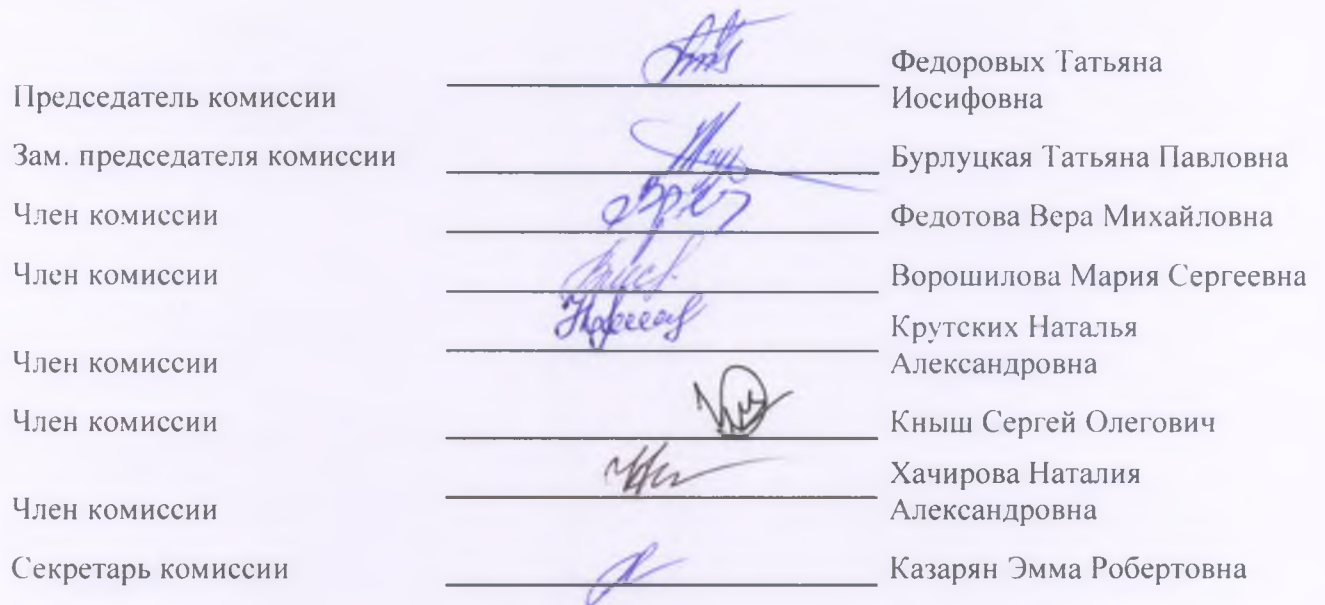 Председатель комиссии Федоровых Татьяна
Иосифовна
Зам. председателя комиссии Бурлуцкая Татьяна Павловна
Член комиссии Федотова Вера Михайловна
Член комиссии Ворошилова Мария Сергеевна
Крутских Наталья
Член комиссии Александровна
Член комиссии Кныш Сергей Олегович
Хачирова Наталия
Член комиссии Александровна
Секретарь комиссии Казарян Эмма Робертовна